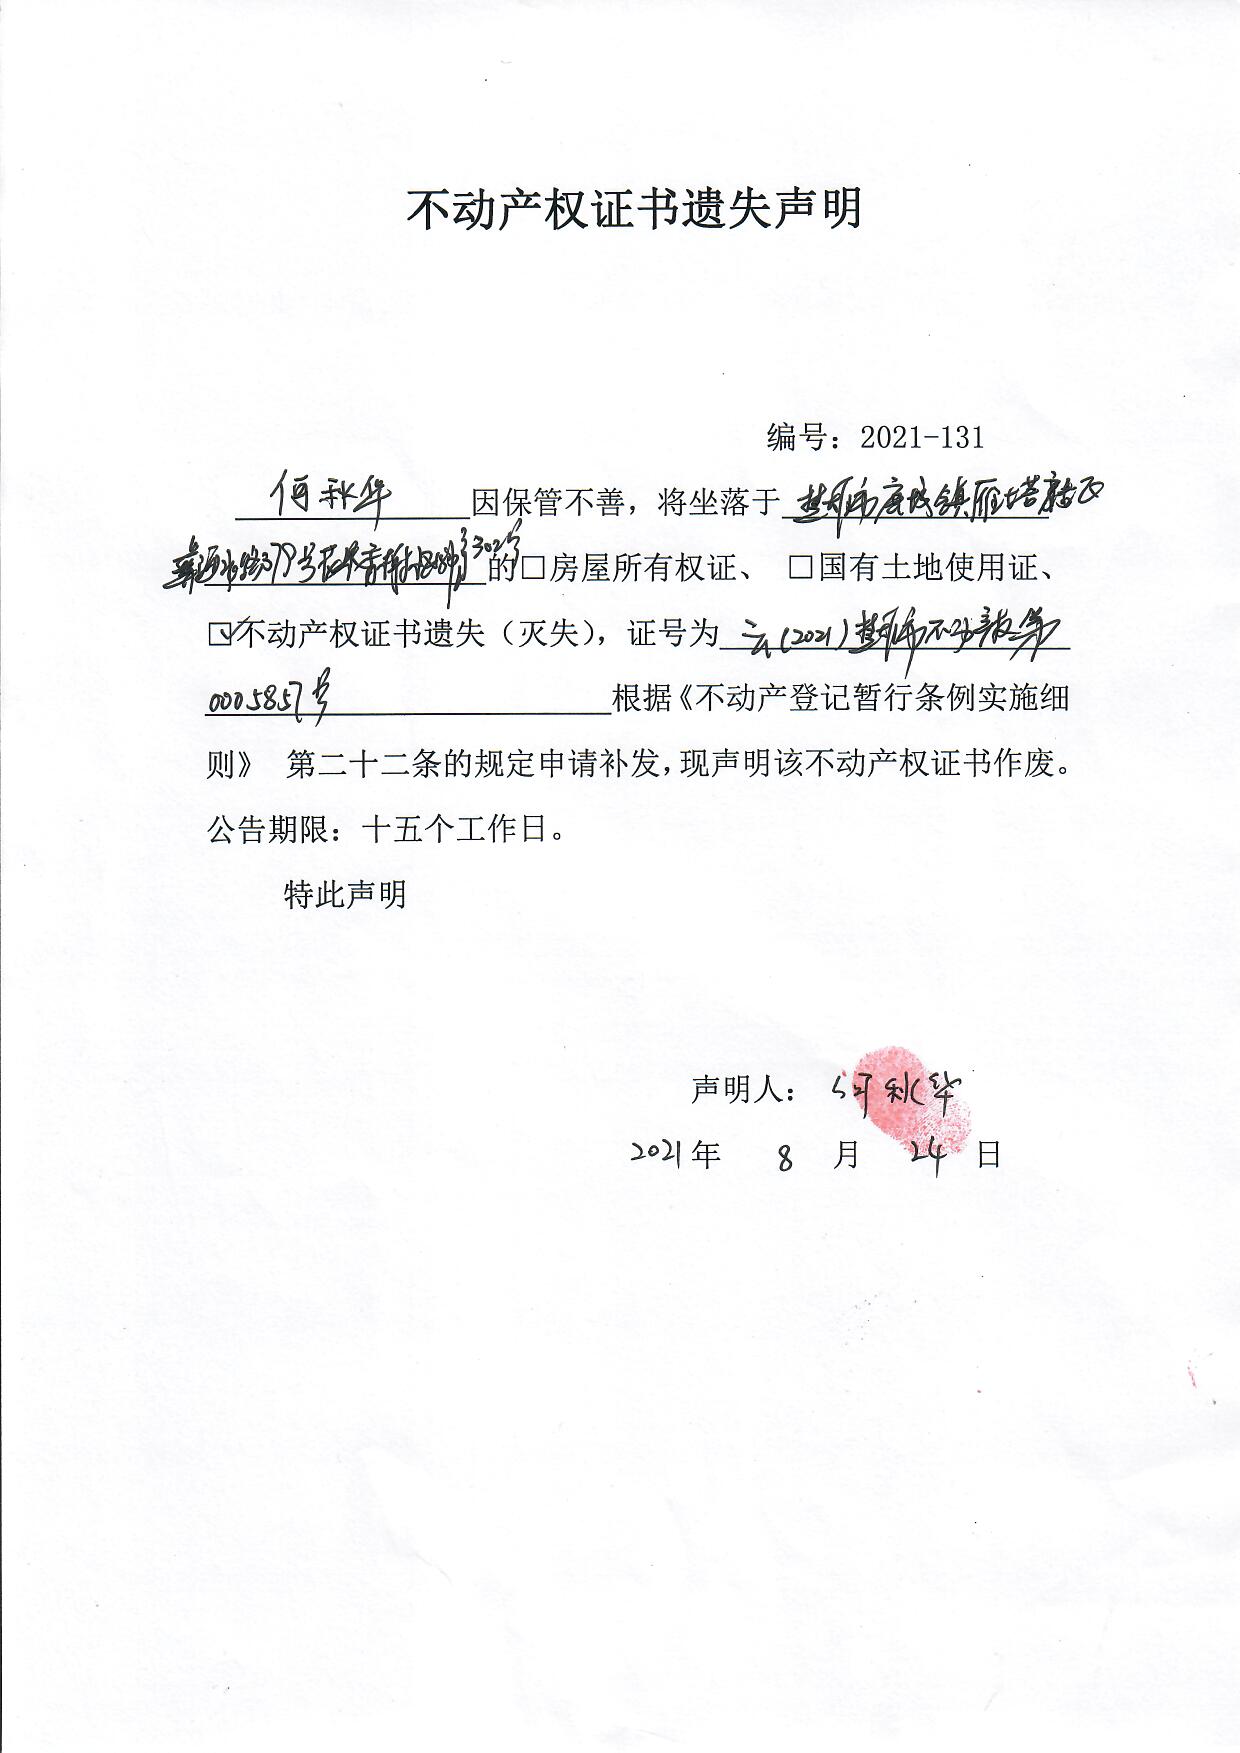 不动产权证书遗失声明
编号：2021-131
何秋华因保管不善，将坐落于楚雄市鹿城镇雁塔社区
79号302号的□房屋所有权证、 □国有土地使用证、
☑不动产权证书遗失（灭失），证号为云(2021)楚雄市不动产权第
0005857号根据《不动产登记暂行条例实施细
则》 第二十二条的规定申请补发，现声明该不动产权证书作废。
公告期限：十五个工作日。
特此声明
声明人：何秋华
2021年 8 月 24 日